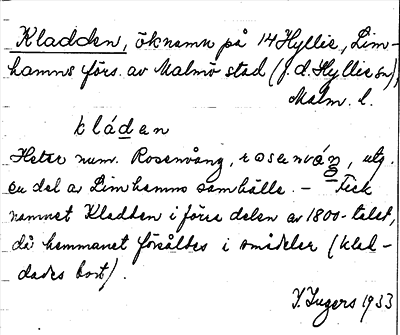 Kladden, öknamn på 14 Hyllie, Lim-
hamns förs. av Malmö stad (f.d. Hyllie sn),
Malm. l.
kláden
Heter num. Rosenvång, rosenváŋ, utg.
en del av Limhamns samhälle. – Fick
namnet Kladden i förra delen av 1800-talet,
då hemmanet försåldes i smådelar (klad-
dades bort).
I. Ingers 1933